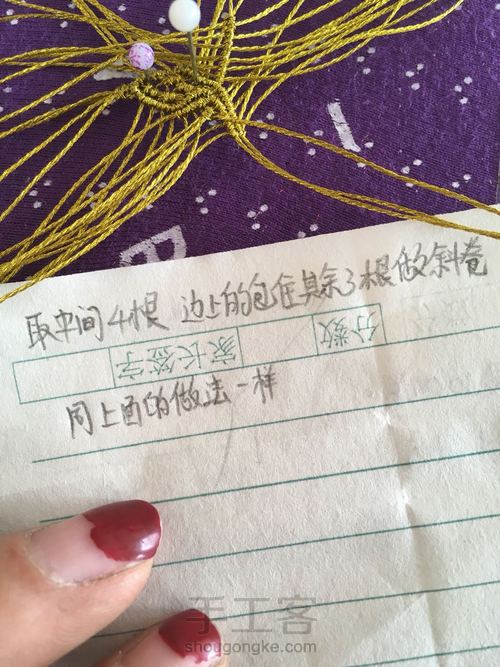 取中间4根 边上的包住其余3根做斜卷
分数 家长签字
同上面的做法一样
手工客
shougongke.com